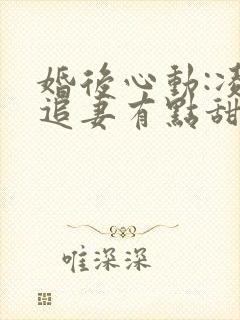 婚後心動:凌
追妻有點甜
唯深深